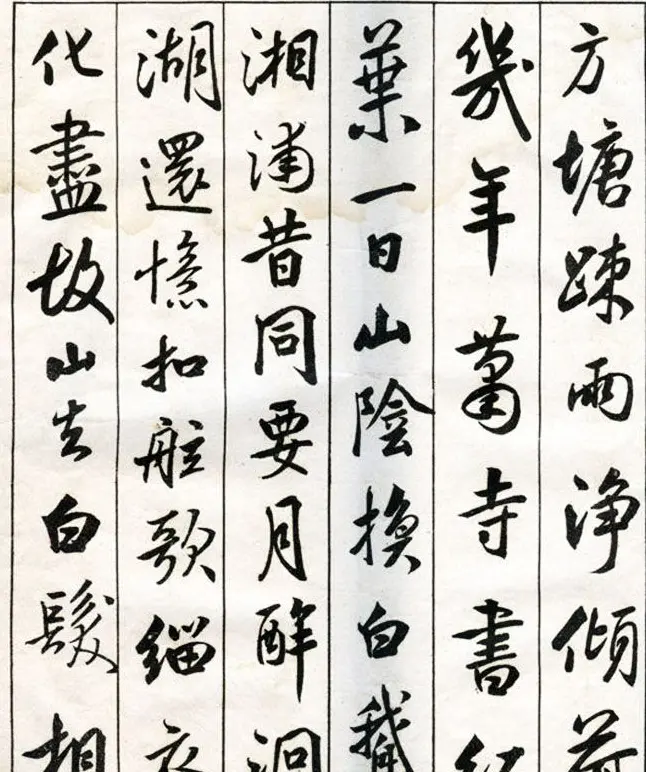 方塘疎雨净傾
幾年蕭寺書
葉一日山陰換白鵝
湘浦昔同要月醉洞
湖還憶扣舷歌緇衣
化盡故山去白髮相